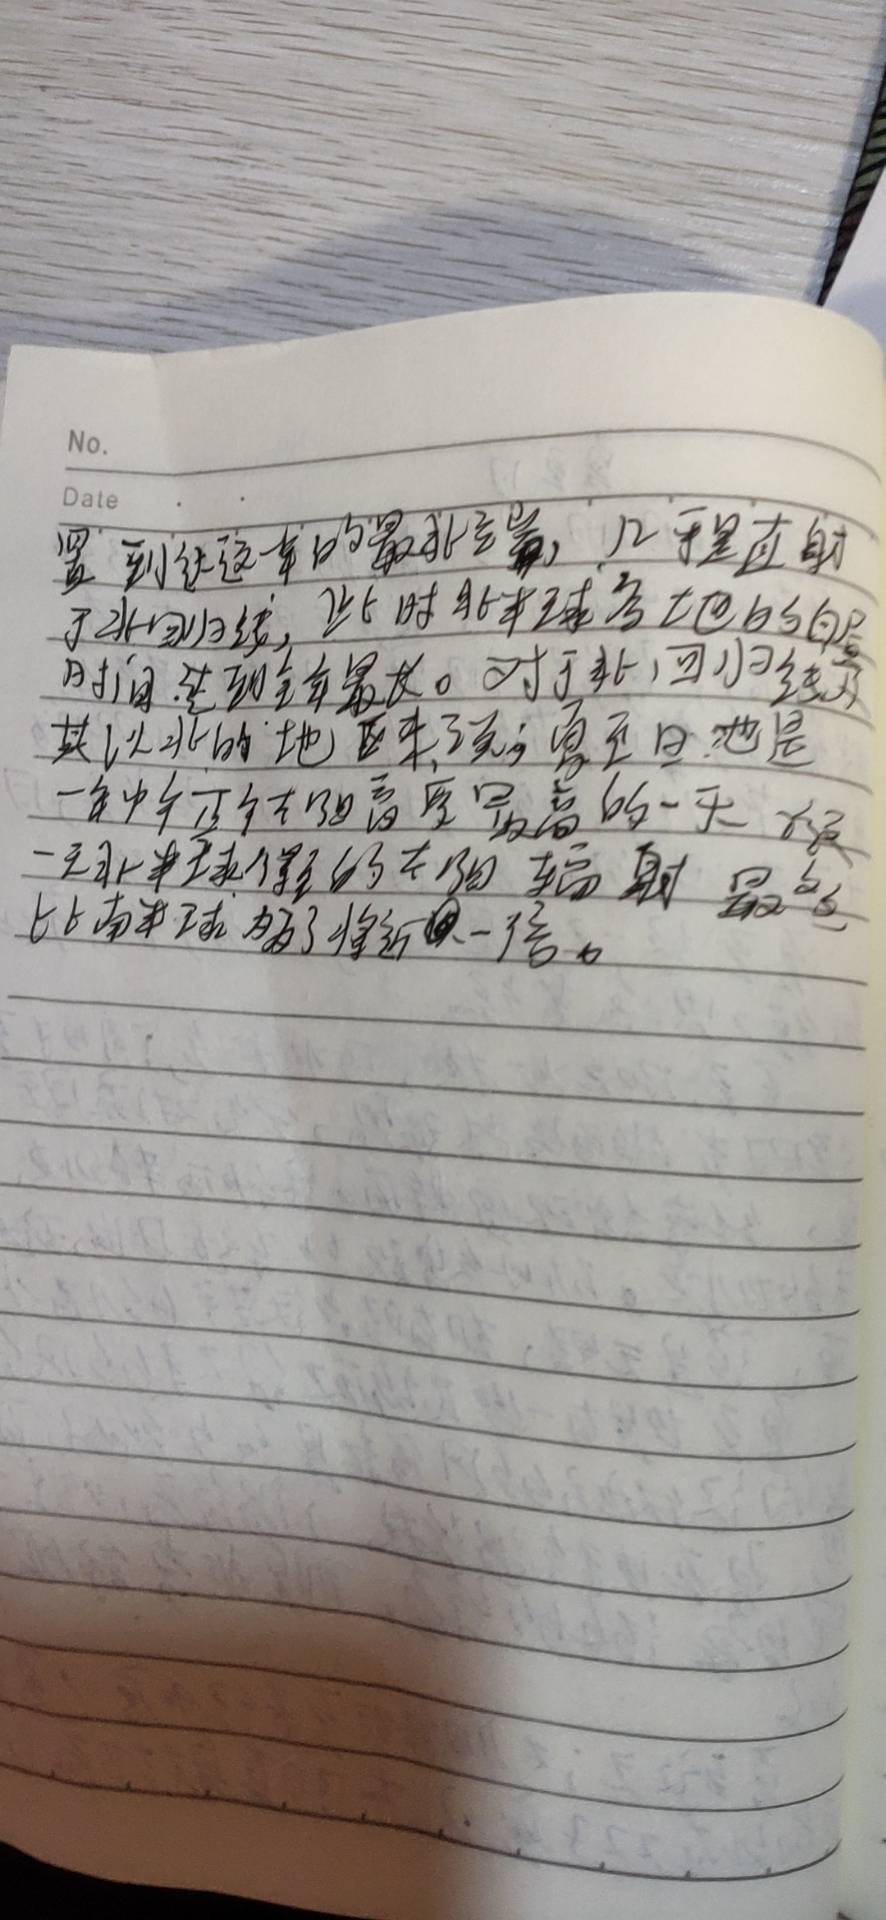 No.
Date
置到达这年的最北端,几乎是直射
于北回归线,此时北半球各地的白昼
时间达到全年最长。对于北回归线及
其以北的地区来说,夏至日也是
一年中正午太阳高度最高的一天 这
一天北半球得到的太阳辐射 最多
比南半球多了将近一倍。